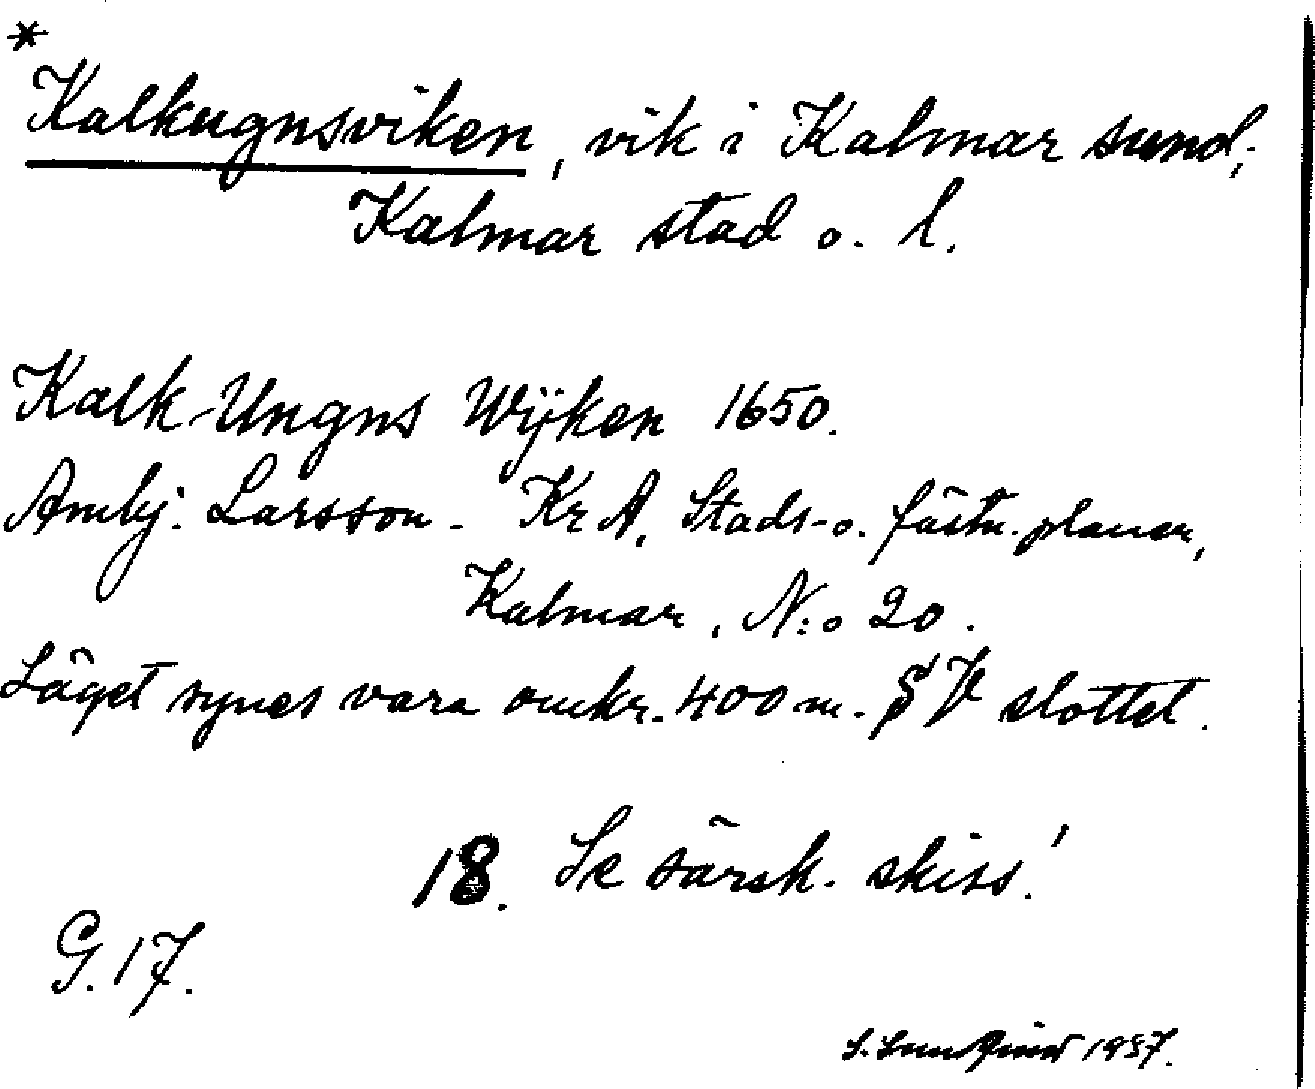 *
Kalkugnsviken, vik i Kalmar sund;
Kalmar stad o. l.
Kalk-Ungns Wijken 1650.
Ambj. Larsson - Kr A, Stads- o. fästn. planer,
Kalmar, N:o 20.
Läget synes vara omkr. 400 m. SV slottet.
18. Se särsk. skiss!
G. 17.
1957.